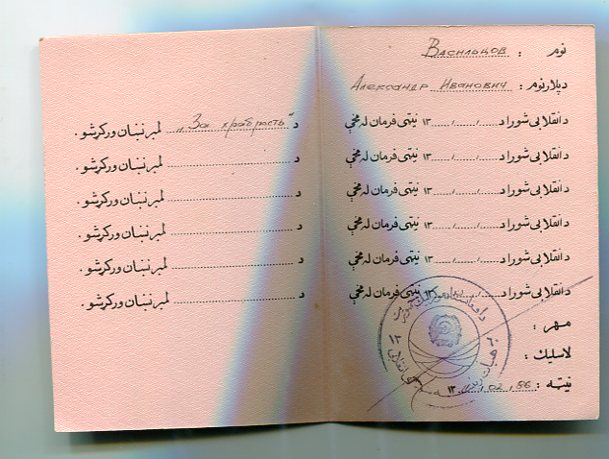 نوم : Васильцов
دپلارنوم : Александр Иванович
دانقلابی شورا د....../....../......۱۳ نیټې فرمان له مخې
دانقلابی شورا د....../....../......۱۳ نیټې فرمان له مخې
دانقلابی شورا د....../....../......۱۳ نیټې فرمان له مخې
دانقلابی شورا د....../....../......۱۳ نیټې فرمان له مخې
دانقلابی شورا د....../....../......۱۳ نیټې فرمان له مخې
دانقلابی شورا د....../....../......۱۳ نیټې فرمان له مخې
مهر :
لاسلیك :
نیټه : 02.86 ۱۳
د „За храбрость“ لمړنښان ورکړشو .
د .............................. لمړنښان ورکړشو .
د .............................. لمړنښان ورکړشو .
د .............................. لمړنښان ورکړشو .
د .............................. لمړنښان ورکړشو .
د .............................. لمړنښان ورکړشو .